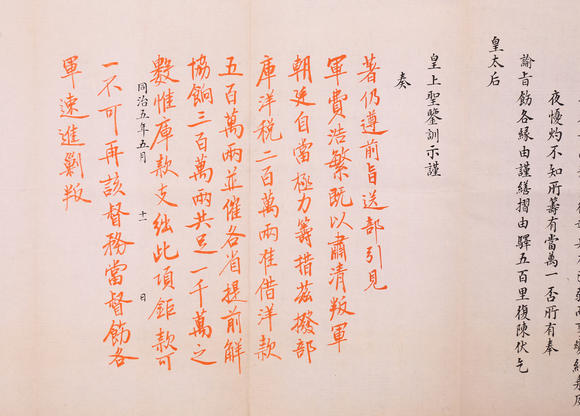 夜懮灼不知所籌有當萬一否所有奉
諭旨飭各緣由謹繕摺由驛五百里復陳伏乞
皇太后
皇上聖鑒訓示謹
奏
著仍遵前旨送部引見
軍費浩繁既以肅清叛軍
朝廷自當極力籌措茲撥部
庫洋稅二百萬兩准借洋款
五百萬兩並催各省提前解
協餉三百萬兩共足一千萬之
數惟庫款支絀此項鉅款可
同治五年五月 十一 日
一不可再該督務當督飭各
軍速進剿叛